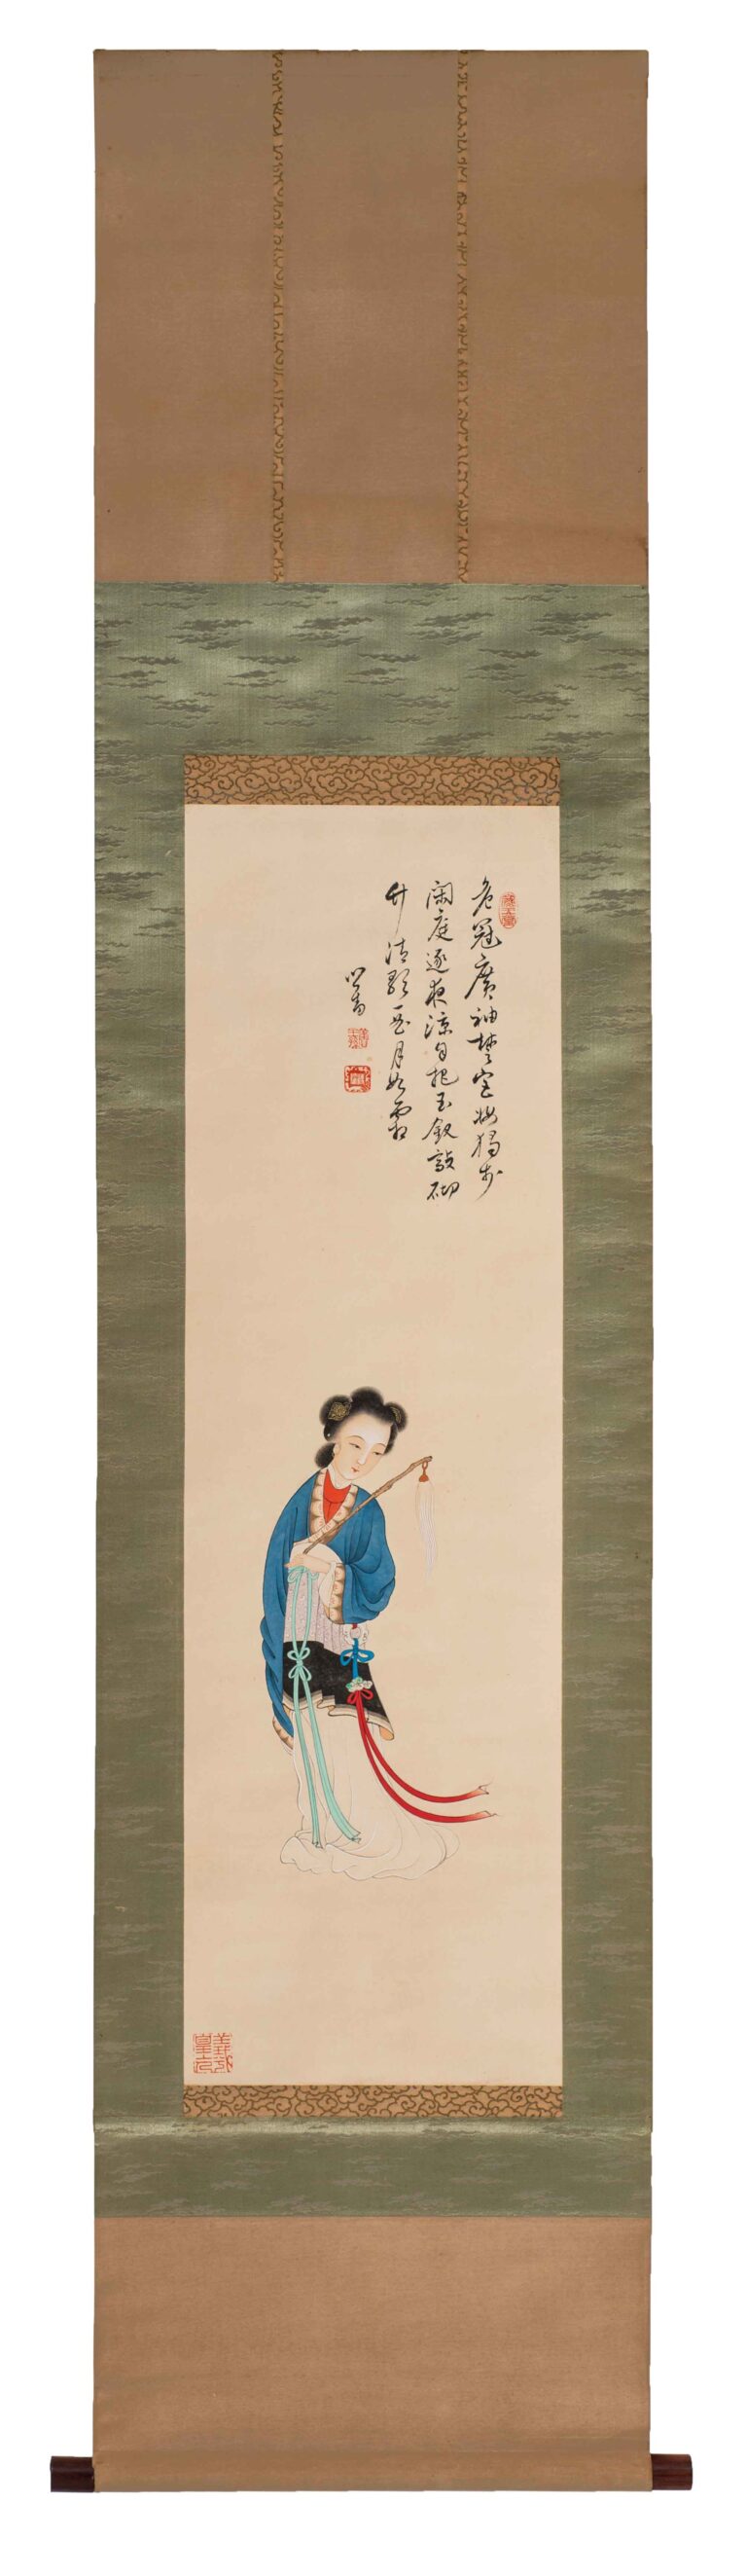 危冠廣袖楚宮妝獨步
閑庭逐夜涼自把玉釵敲砌
竹清歌一曲月如霜
心畬